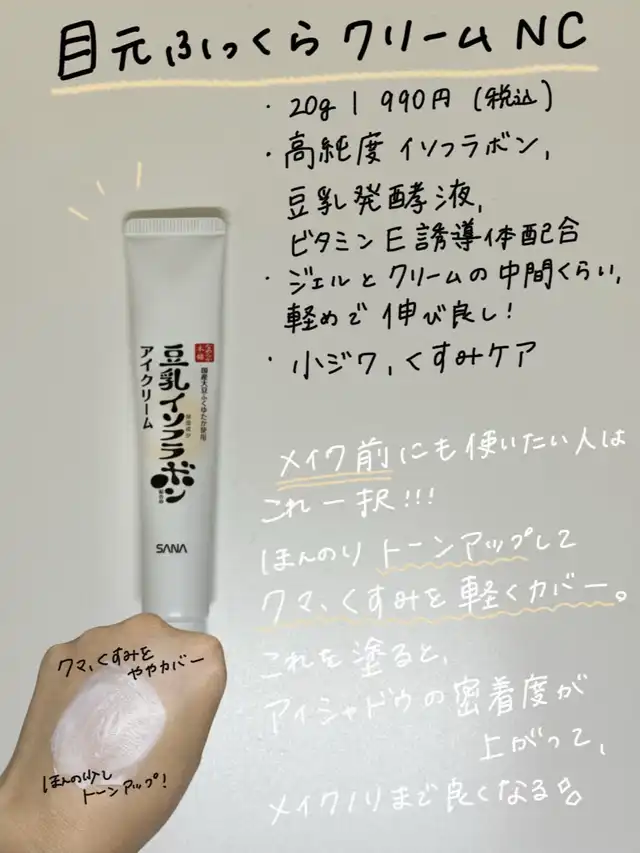 目元ふっくらクリームNC
・20g | 990円 (税込)
・高純度イソフラボン,
豆乳発酵液,
ビタミンE誘導体配合
・ジェルとクリームの中間くらい,
軽めで伸び良し!
・小ジワ,くすみケア
豆乳イソフラボン
アイクリーム
国産大豆ふくゆたか使用
保湿成分
SANA
メイク前にも使いたい人は
これ一択!!!
ほんのりトーンアップして
クマ、くすみを軽くカバー。
これを塗ると、
アイシャドウの密着度が
上がって、
メイクノリまで良くなる
クマ、くすみを
ややカバー
ほんの少し
トーンアップ!